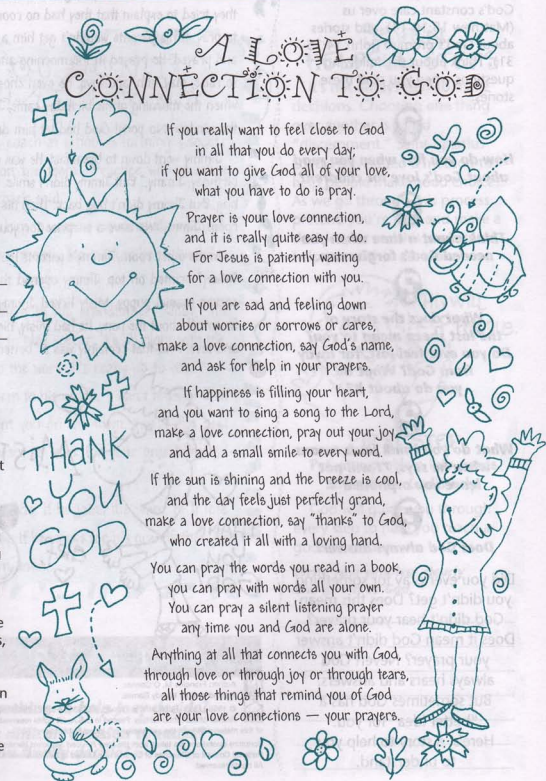 A LOVE
CONNECTION TO GOD
If you really want to feel close to God
in all that you do every day;
if you want to give God all of your love,
what you have to do is pray.
Prayer is your love connection,
and it is really quite easy to do.
For Jesus is patiently waiting
for a love connection with you.
If you are sad and feeling down
about worries or sorrows or cares,
make a love connection, say God's name,
and ask for help in your prayers.
If happiness is filling your heart,
and you want to sing a song to the Lord,
make a love connection, pray out your joy
and add a small smile to every word.
If the sun is shining and the breeze is cool,
and the day feels just perfectly grand,
make a love connection, say "thanks" to God,
who created it all with a loving hand.
You can pray the words you read in a book,
you can pray with words all your own.
You can pray a silent listening prayer
any time you and God are alone.
Anything at all that connects you with God,
through love or through joy or through tears,
all those things that remind you of God
are your love connections — your prayers.
THANK
YOU
GOD